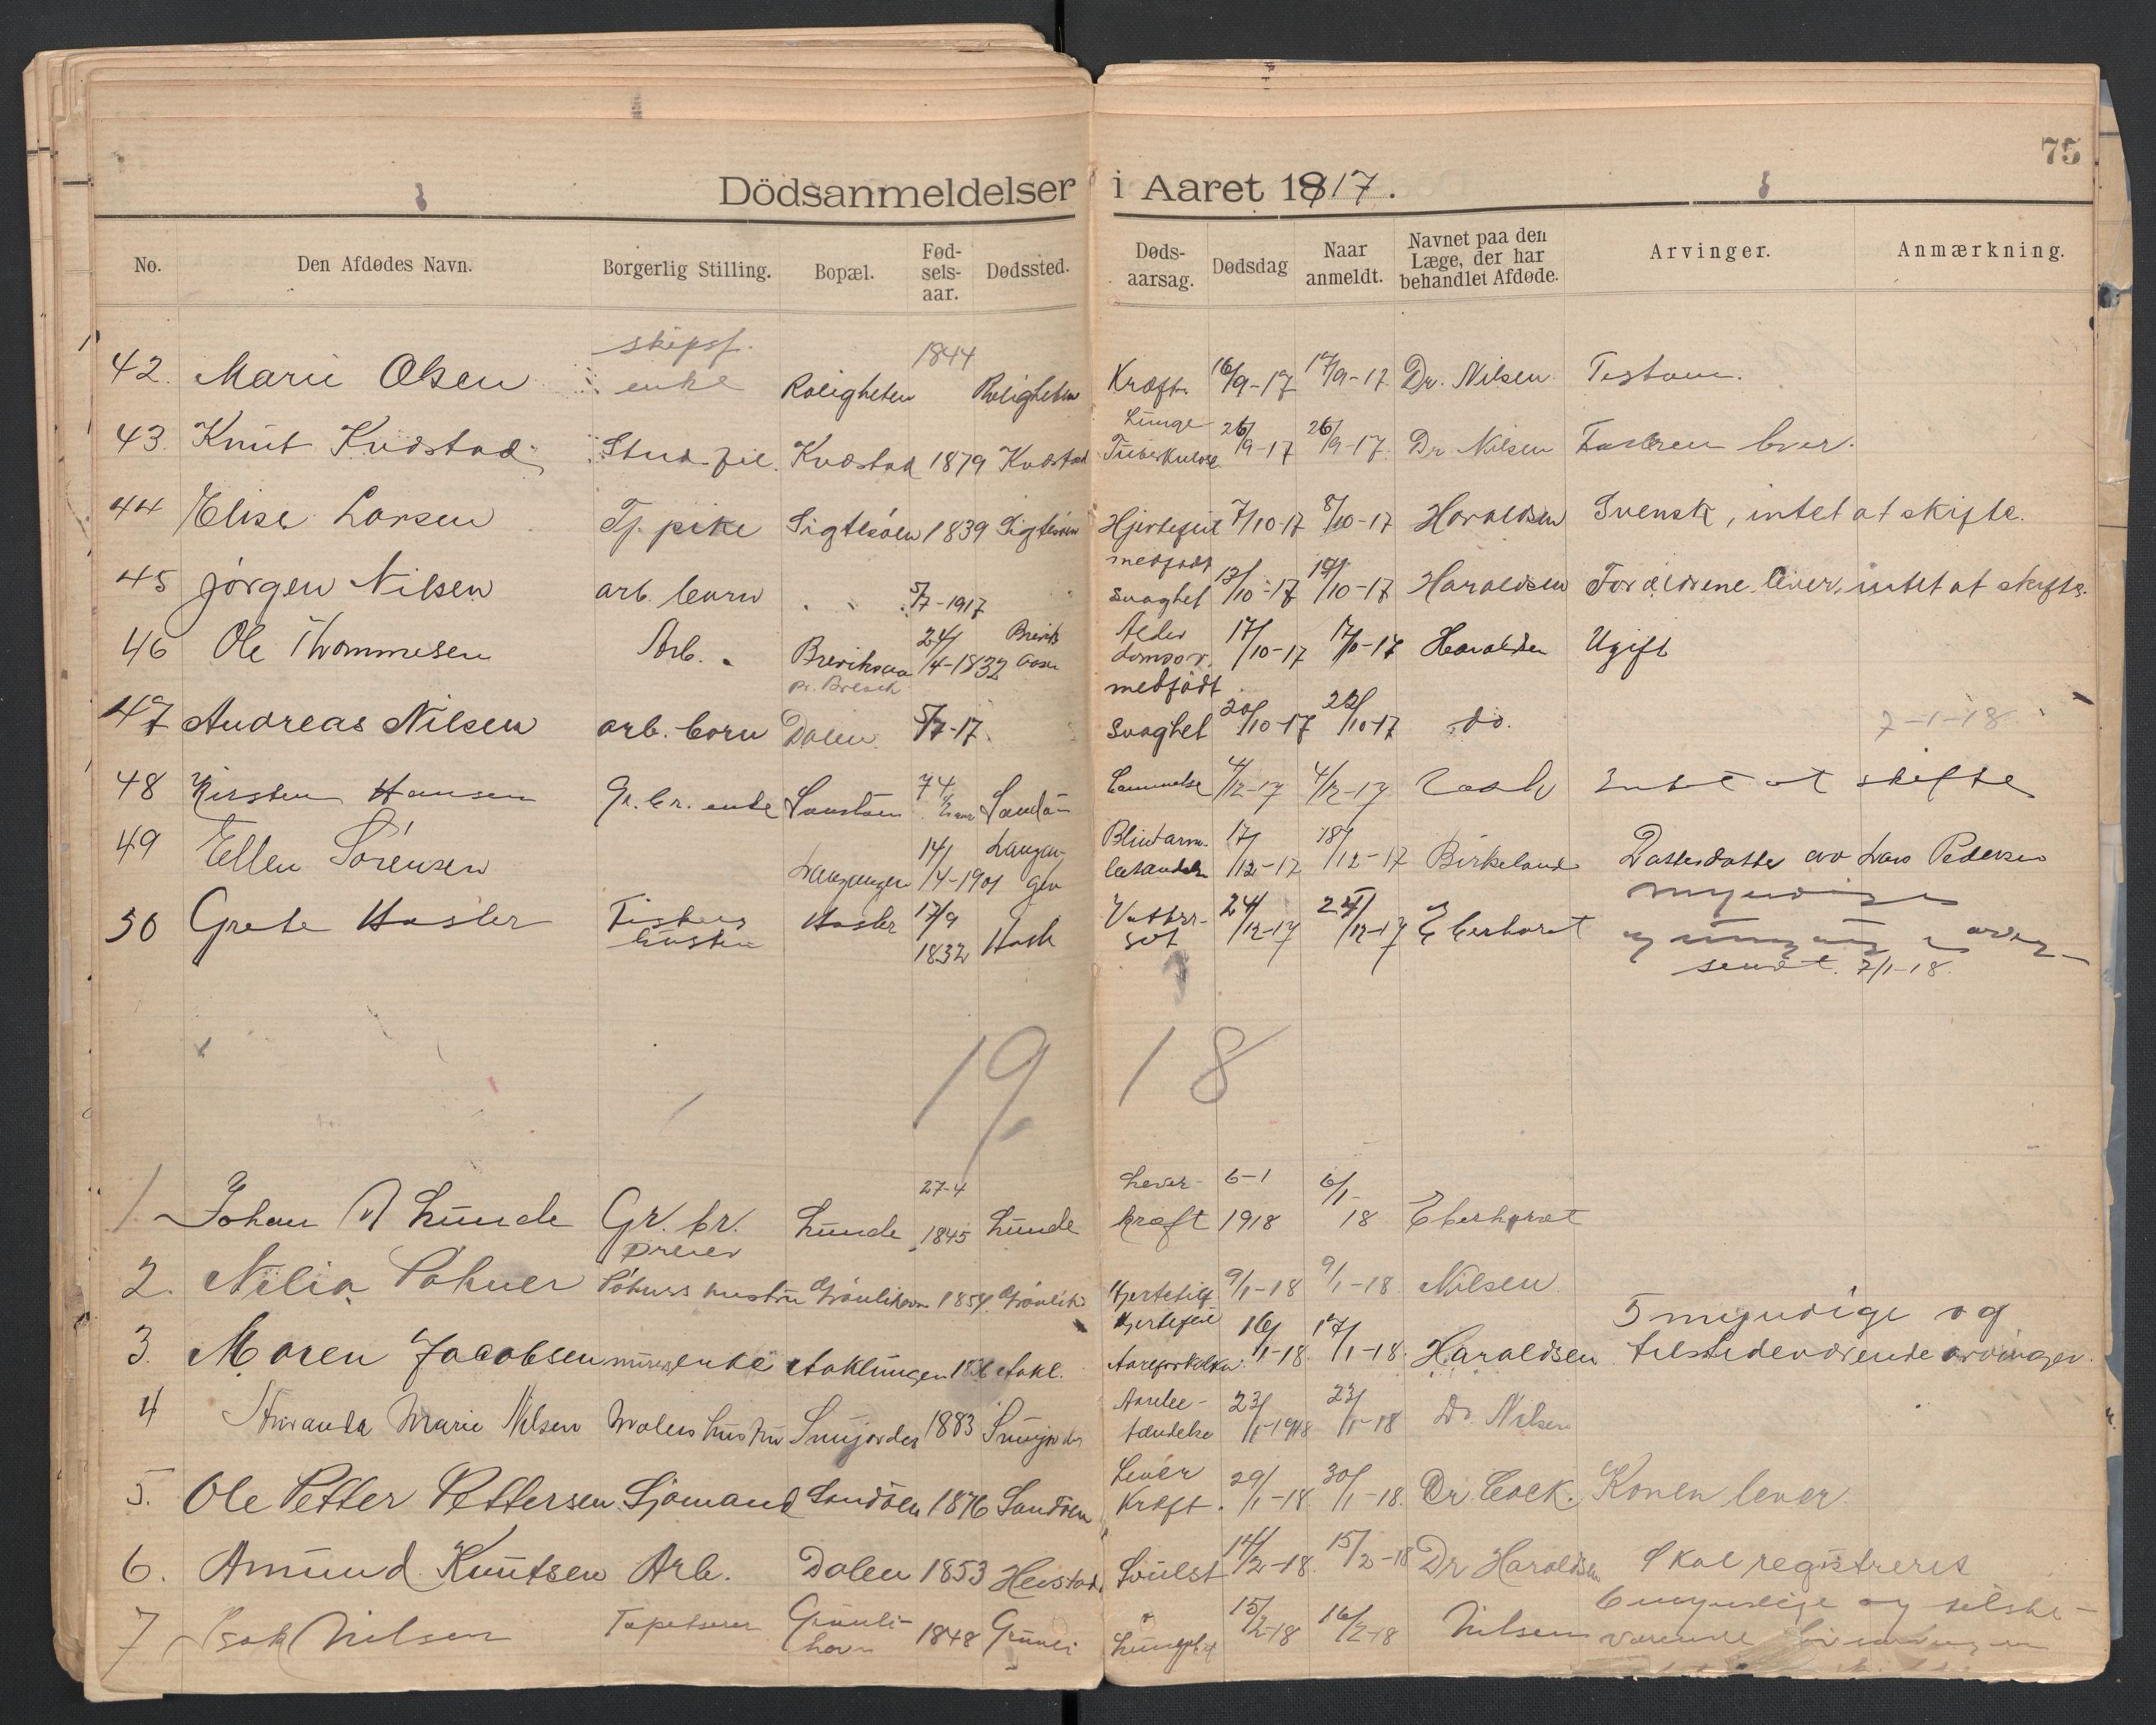 75
Dödsanmeldelser i Aaret 1917.
No. Den Afdødes Navn. Borgerlig Stilling. Bopæl. Fød-sels-aar. Dødssted. Døds-aarsag. Dødsdag Naar anmeldt. Navnet paa den Læge, der har behandlet Afdøde. Arvinger. Anmærkning.
42. Marie Olsen skipsf. enke Roligheten 1844 Roligheten Kræft 16/9-17 17/9-17 Dr. Nilsen Testam.
43. Knut Kvæstad Stud. fil. Kvæstad 1879 Kvæstad Lunge Tuberkulose 26/9-17 26/9-17 Dr Nilsen lever.
44 Elise Larsen Tj. pike Sigtesøen 1839 Sigtesøen Hjertefeil 7/10-17 8/10-17 Haraldsen Svensk, intet at skifte.
45 Jörgen Nilsen arb. barn 5/7-1917 medfødt svaghet 13/10-17 17/10-17 Haraldsen Forældrene lever, intet at skifte.
46 Ole Thommesen Arb. Breviksaa 24/4-1832 Breviks aasen Alderdoms 17/10-17 17/10-17 Haraldsen Ugift
47 Andreas Nilsen arb. barn Dalen 5/7-17 medfödt svaghet 20/10-17 20/10-17 do. 7-1-18
48 Kirsten Hansen Gr. br. enke Sandöen 74 Sandö- Lammelse 4/12-17 4/12-17 Intet at skifte
49 Ellen Sörensen Langangen 14/4-1901 Langangen Blindarm betændelse 17/12-17 18/12-17 Birkeland Datterdatter av Lars Pedersen
50 Grete Hasler Fiskers hustru Hasler 17/9 1832 Hasle Vattersot 24/12-17 24/12-17 Eberhardt myndige
sendt. 7/1-18.
19 18
1. Johan A Lunde Gr. br. Lunde 27-4 1845 Lunde Leverkræft 6-1 1918 6/1-18 Eberhardt
2. Nilia Pöhner Pöhners hustru Grönlihavn 1854 Grönlih. Hjertefeil 9/1-18 9/1-18 Nilsen
3. Maren Jacobsen murersenke Aaklungen Aakl. Hjertefeil Aareforkalkn. 16/1-18 17/1-18. Haraldsen 5 myndige og tilstedeværende arvinger.
4 Amanda Marie Nilsen Malers hustru 1883 Aarebetændelse 23/1-1918 23/1-18 Dr. Nilsen
5. Ole Petter Pettersen Sjömand Sandöen 1876 Sandöen Lever Kræft. 29/1-18 30/1-18. Dr. Cock. Konen lever.
6. Amund Knutsen Arb. Dalen 1853 Heistad. Svulst 14/2-18. 15/2-18 Dr Haraldsen Skal registreres
7 Isak Nilsen Tapetserer Grönlihavn 1848 Grönli 15/2-18 16/2-18 Nilsen 6 myndige og tilstedeværende